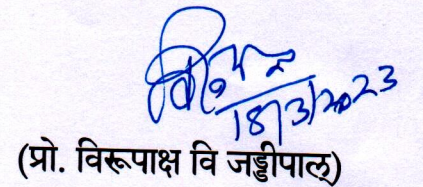 18/3/2023
(प्रो. विरूपाक्ष वि जड्डीपाल्)